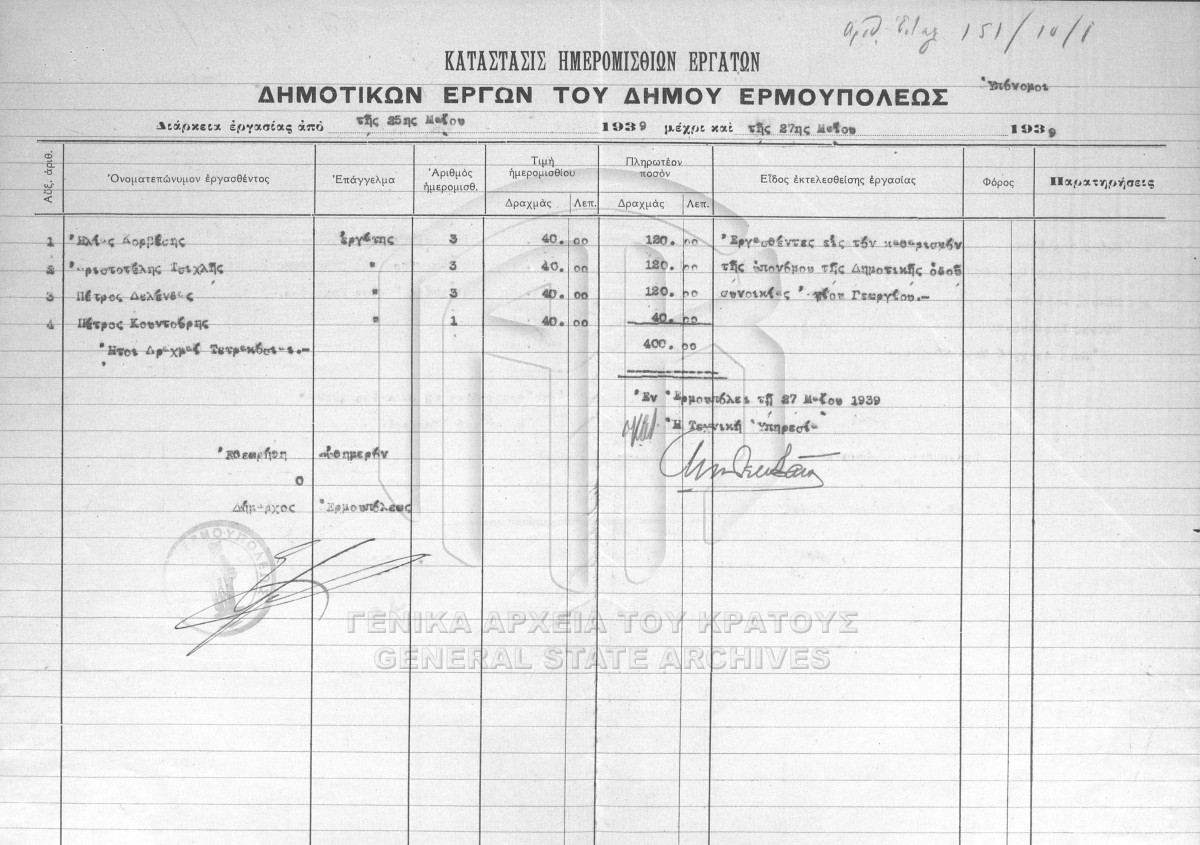 151/10/1
ΚΑΤΑΣΤΑΣΙΣ ΗΜΕΡΟΜΙΣΘΙΩΝ ΕΡΓΑΤΩΝ
Ὑπόνομοι
ΔΗΜΟΤΙΚΩΝ ΕΡΓΩΝ ΤΟΥ ΔΗΜΟΥ ΕΡΜΟΥΠΟΛΕΩΣ
Διάρκεια ἐργασίας ἀπὸ τῆς 25ης Μαΐου 1939 μέχρι καὶ τῆς 27ης Μαΐου 1939
Αὔξ. ἀριθ. Ὀνοματεπώνυμον ἐργασθέντος Ἐπάγγελμα Ἀριθμὸς ἡμερομισθ. Τιμὴ ἡμερομισθίου Δραχμὰς Λεπ. Πληρωτέον ποσὸν Δραχμὰς Λεπ. Εἶδος ἐκτελεσθείσης ἐργασίας Φόρος Παρατηρήσεις
1 Ἠλίας Κορβέσης ἐργάτης 3 40. 00 120. 00 Ἐργασθέντες εἰς τόν καθαρισμόν
2 Ἀριστοτέλης Τσιχλῆς " 3 40. 00 120. 00 τῆς ὑπονόμου τῆς Δημοτικῆς ὁδοῦ
3 Πέτρος Δελένδας " 3 40. 00 120. 00 συνοικίας Ἁγίου Γεωργίου.-
4 Πέτρος Κουντούρης " 1 40. 00 40. 00
Ἤτοι Δραχμαί Τετρακόσιαι.- 400. 00
Ἐν Ἑρμουπόλει τῇ 27 Μαΐου 1939
Ἡ Τεχνική Ὑπηρεσία
Ἐθεωρήθη αὐθημερόν
Ο
Δήμαρχος Ἑρμουπόλεως
ΕΡΜΟΥΠΟΛΕΩΣ
ΓΕΝΙΚΑ ΑΡΧΕΙΑ ΤΟΥ ΚΡΑΤΟΥΣ
GENERAL STATE ARCHIVES